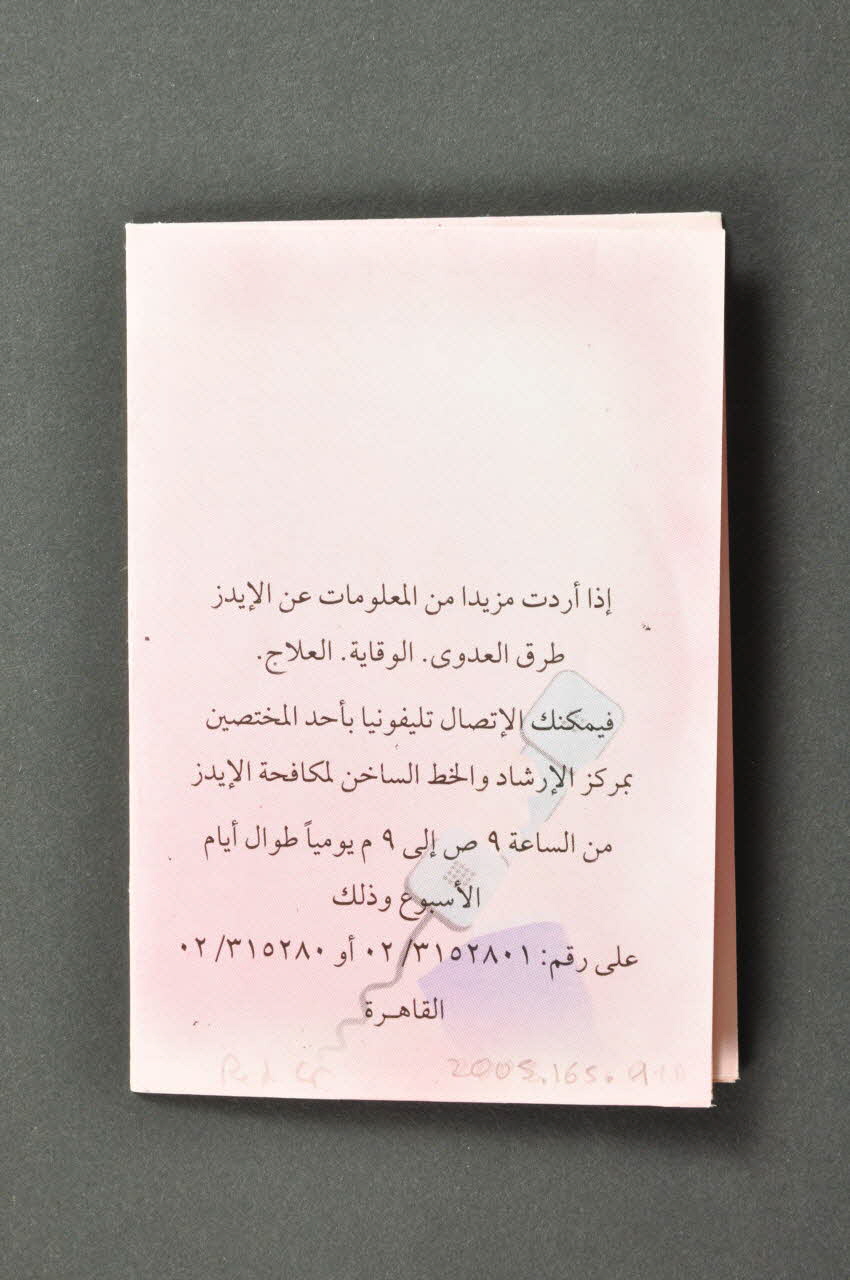 إذا أردت مزيدا من المعلومات عن الإيدز
طرق العدوى. الوقاية. العلاج.
فيمكنك الإتصال تليفونيا بأحد المختصين
بمركز الإرشاد والخط الساخن لمكافحة الإيدز
من الساعة ٩ ص إلى ٩ م يومياً طوال أيام
الأسبوع وذلك
على رقم: ٠٢/٣١٥٢٨٠١ أو ٠٢/٣١٥٢٨٠
القاهـرة
2005.165.9